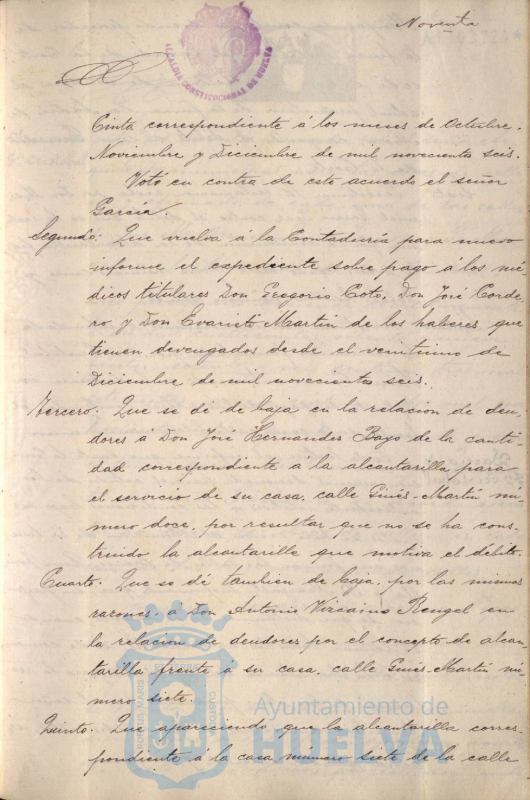 Noventa
ALCALDIA CONSTITUCIONAL DE HUELVA
Cinta correspondiente á los meses de Octubre,
Noviembre y Diciembre de mil novecientos seis.
Votó en contra de este acuerdo el señor
García.
Segundo. Que vuelva á la Contaduría para nuevo
informe el expediente sobre pago á los mé-
dicos titulares Don Gregorio Coto, Don José Corde-
ro, y Don Evaristo Martin de los haberes que
tienen devengados desde el veintiuno de
Diciembre de mil novecientos seis.
Tercero. Que se dé de baja en la relacion de deu-
dores á Don José Hernandez Bayo de la canti-
dad correspondiente á la alcantarilla para
el servicio de su casa, calle Ginés-Martín nú-
mero doce, por resultar que no se ha cons-
truido la alcantarilla que motiva el débito.
Cuarto. Que se dé tambien de baja, por las mismas
razones, á Don Antonio Vizcaino Rengel en
la relacion de deudores por el concepto de alcan-
tarilla frente á su casa, calle Ginés-Martín nú-
mero siete.
Quinto. Que apareciendo que la alcantarilla corres-
pondiente á la casa número siete de la calle
Ayuntamiento de
HUELVA